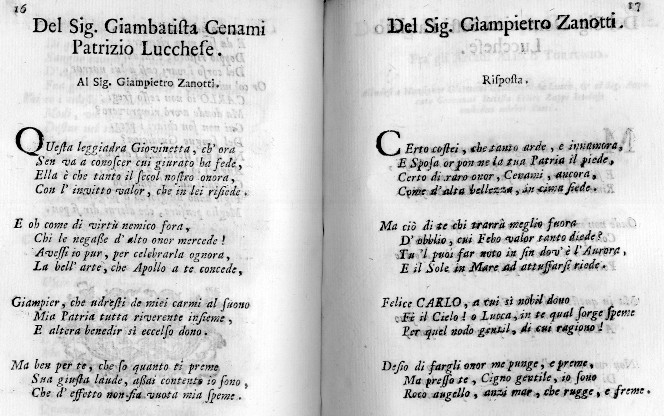 16
Del Sig. Giambatista Cenami
Patrizio Lucchese.
Al Sig. Giampietro Zanotti.
QUesta leggiadra Giovinetta, ch' ora
Sen va a conoscer cui giurato ha fede,
Ella è che tanto il secol nostro onora,
Con l' invitto valor, che in lei risiede.
E oh come di virtù nemico fora,
Chi le negasse d' alto onor mercede!
Avess' io pur, per celebrarla ognora,
La bell' arte, che Apollo a te concede,
Giampier, che udresti de miei carmi al suono
Mia Patria tutta riverente insieme,
E altera benedir sì eccelso dono.
Ma ben per te, che so quanto ti preme
Sua giusta laude, assai contento io sono,
Che d' effetto non fia vuota mia speme.
17
Del Sig. Giampietro Zanotti.
Risposta.
CErto costei, che tanto arde, e innamora,
E Sposa or pon ne la tua Patria il piede,
Certo di raro onor, Cenami, ancora,
Come d'alta bellezza, in cima siede.
Ma ciò di te chi trarrà meglio fuora
D' obblio, cui Febo valor tanto diede?
Tu 'l puoi far noto in sin dov' è l' Aurora,
E il Sole in Mare ad attuffarsi riede.
Felice CARLO, a cui sì nobil dono
Fè il Cielo! o Lucca, in te qual sorge speme
Per quel nodo gentil, di cui ragiono!
Desio di fargli onor me punge, e preme,
Ma presso te, Cigno gentile, io sono
Roco augello, anzi mar, che rugge, e freme.